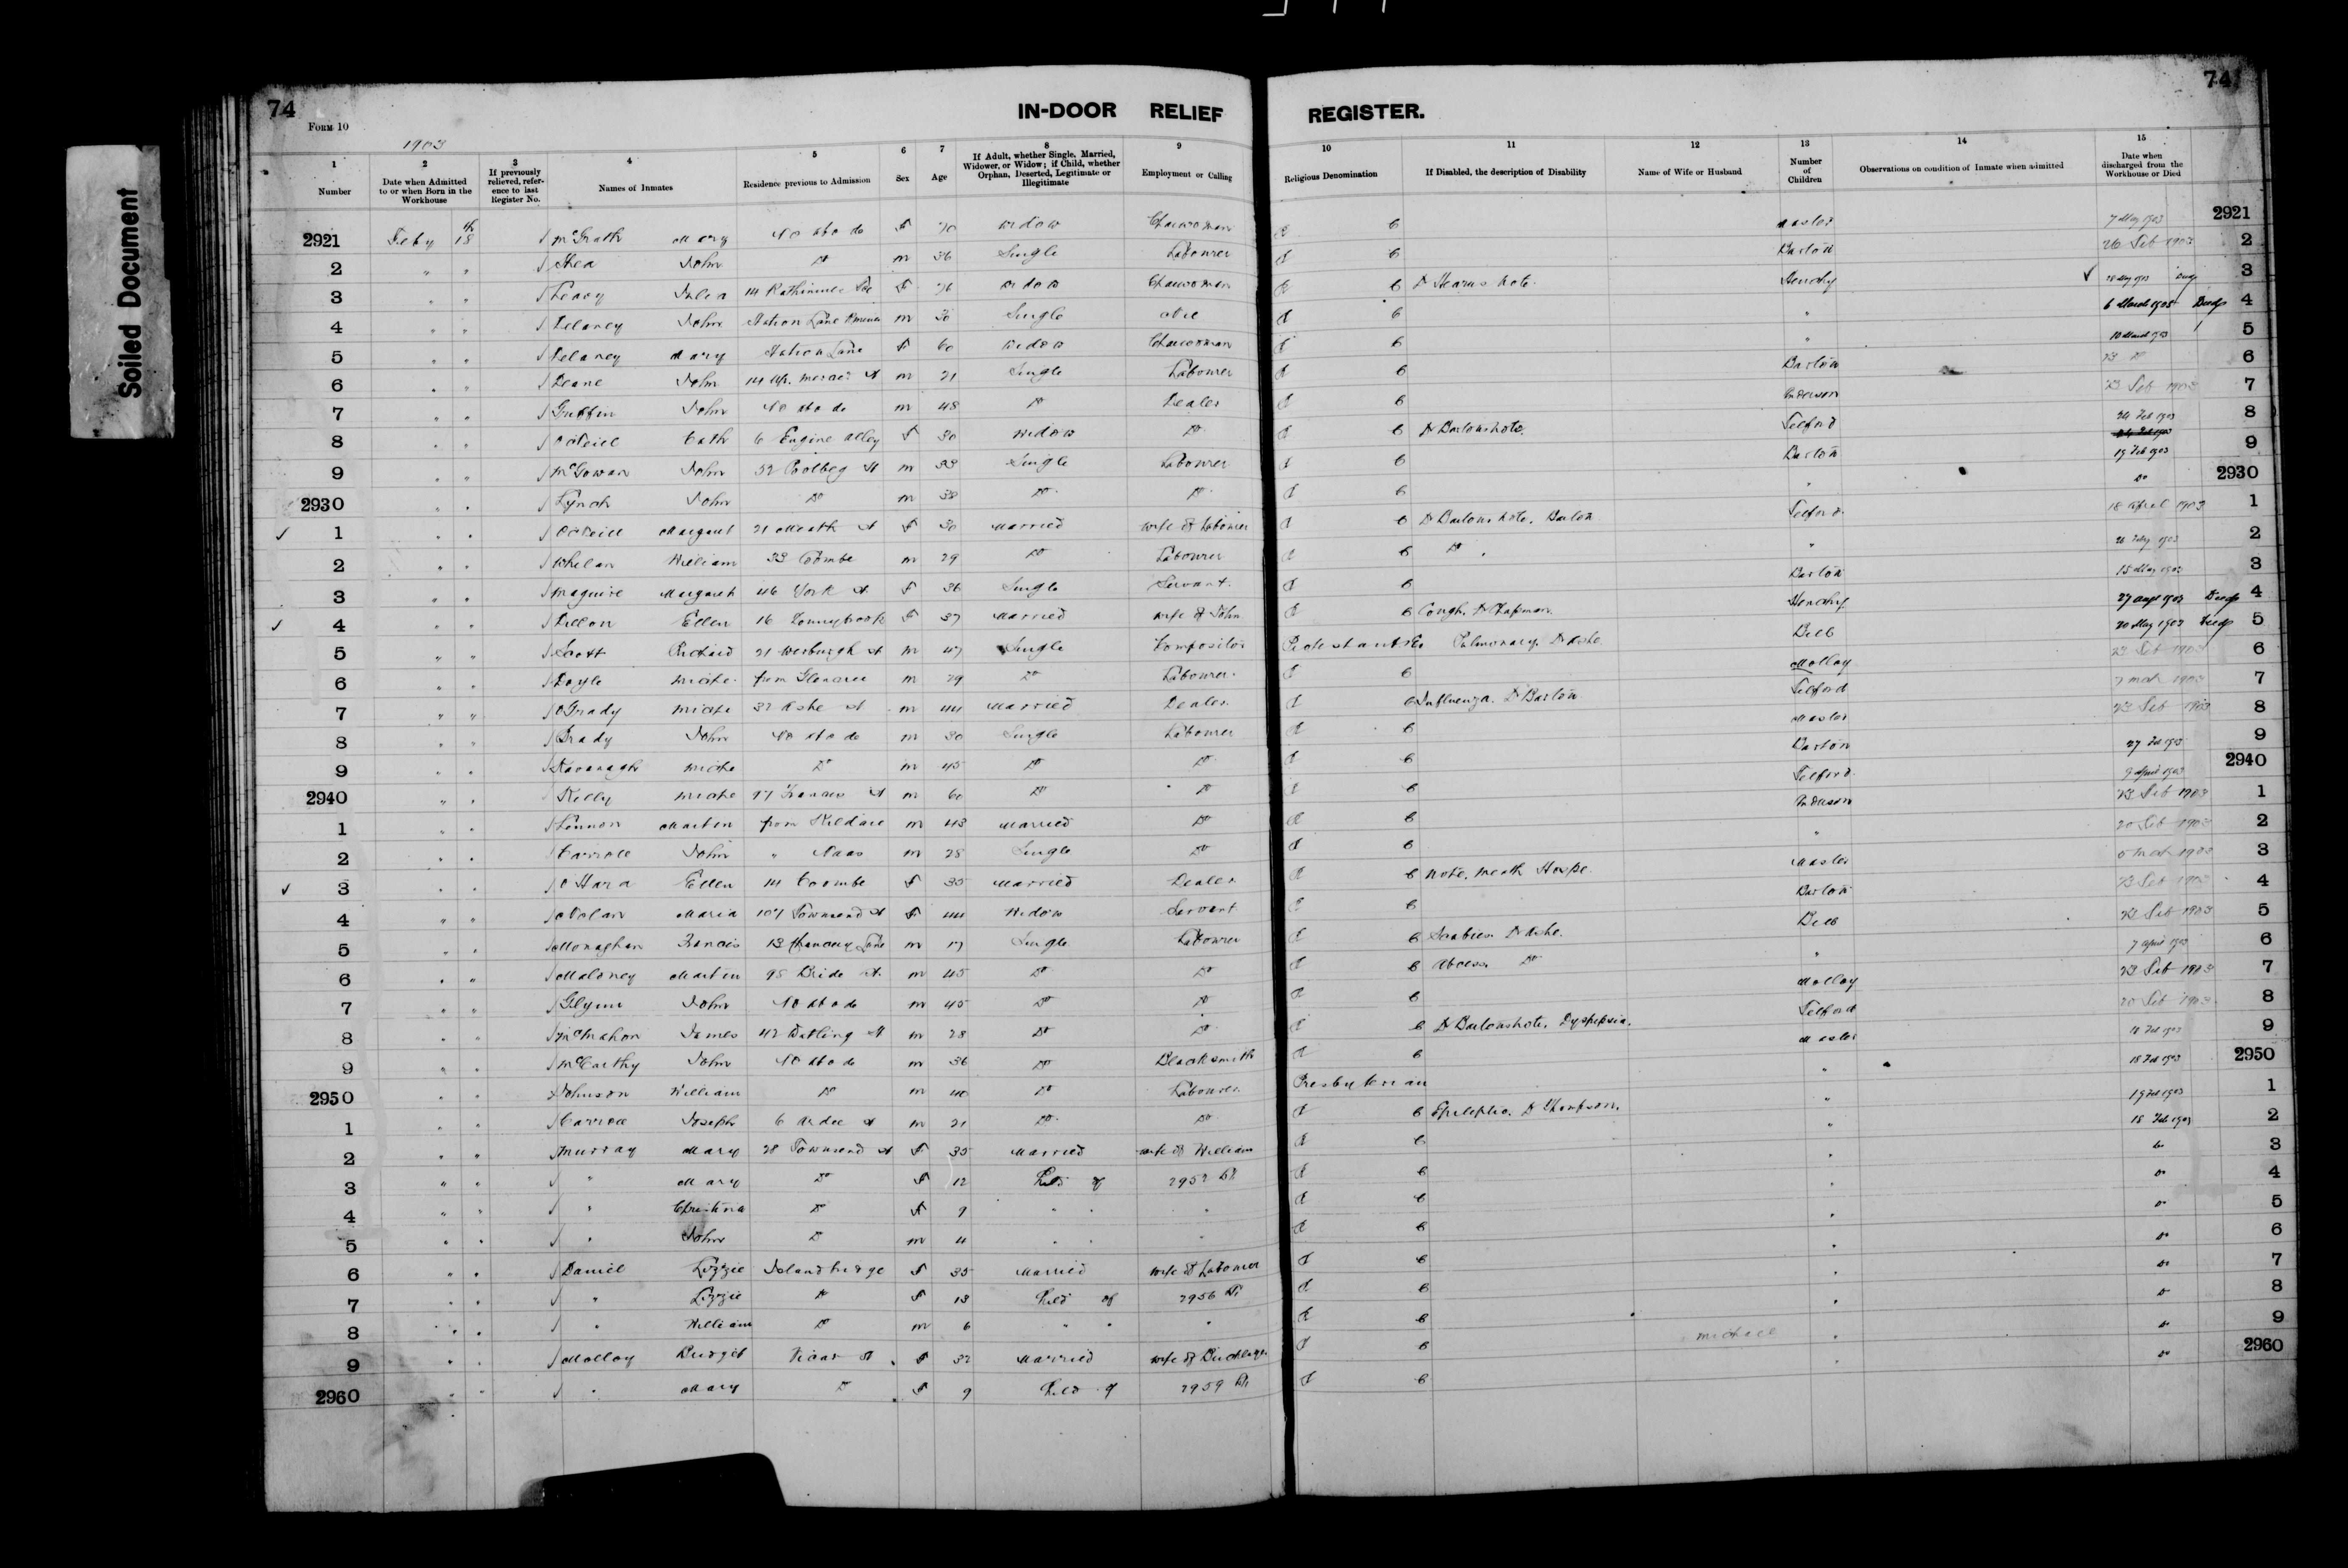 Soiled Document
74
74
IN-DOOR RELIEF REGISTER.
FORM 10
1903
1 2 3 4 5 6 7 8 9 10 11 12 13 14 15
Number
Date when Admitted to or when Born in the Workhouse
If previously relieved, reference to last Register No.
Names of Inmates
Residence previous to Admission
Sex
Age
If Adult, whether Single, Married, Widower, or Widow; if Child, whether Orphan, Deserted, Legitimate or Illegitimate
Employment or Calling
Religious Denomination
If Disabled, the description of Disability
Name of Wife or Husband
Number of Children
Observations on condition of Inmate when admitted
Date when discharged from the Workhouse or Died
2921 Feby 18th McGrath Mary No abode F 70 Widow Charwoman R C Master 7 May 1903 2921
2 " " Shea John Do m 36 Single Labourer R C Barton 26 Feb 1903 2
3 " " Leavy Julia 14 Rathmines F 76 Widow Charwoman R C Dr Hearns note Hendry 1903 Died 3
4 " " Delaney John Station Lane m Single R C " 6 March 1903 Died 4
5 " " Delaney Mary Station Lane F 60 Widow Charwoman R C " 10 March 1903 5
6 " " Deane John 14 Up. Mercer St m 21 Single Labourer R C Barton 23 Do 6
7 " " Griffin John No abode m 48 Do Dealer R C Anderson 23 Feb 1903 7
8 " " O'Neill Cath 6 Engine Alley F 30 Widow Do R C Dr Bartons note. Telford 24 Feb 1903 8
9 " " McGowan John 52 Poolbeg St m 33 Single Labourer R C Barton 19 Feb 1903 9
2930 " " Lynch John Do m 38 Do Do R C " Do 2930
1 " " O'Neill Margaret 21 Meath St F 30 Married wife of Labourer R C Dr Bartons note. Telford 18 April 1903 1
2 " " Whelan William 33 Coombe m 29 Do Labourer R C Do " 1903 2
3 " " Maguire Margaret 46 York St F 36 Single Servant R C Barton 15 May 1903 3
4 " " Dillon Ellen 16 Donnybrook F 37 Married wife of John R C Cough. Dr Chapman Hendry 27 Augt 1903 Died 4
5 " " Scott Richard 21 Werburgh St m 47 Single Compositor Protestant Pulmonary. Dr Ashe Bell 20 May 1903 Died 5
6 " " Doyle Miche from Glencree m 29 Do Labourer R C Molloy 23 Feb 1903 6
7 " " O'Grady Miche 32 Ashe St m 44 Married Dealer R C Influenza. Dr Barton Telford 7 Mch 1903 7
8 " " Brady John No abode m 30 Single Labourer R C Master 23 Feb 1903 8
9 " " Kavanagh Miche Do m 45 Do Do R C Barton 27 Feb 1903 9
2940 " " Kelly Miche 97 Francis St m 60 Do Do R C Telford 9 April 1903 2940
1 " " Lennon Martin from Kildare m 43 Married Do R C Anderson 23 Feb 1903 1
2 " " Carroll John " Naas m 28 Single Do R C " 20 Feb 1903 2
3 " " O'Hara Ellen 14 Coombe F 35 Married Dealer R C Note. Meath Hospl. Master 5 Mch 1903 3
4 " " Nolan Maria 107 Townsend St F 44 Widow Servant R C Barton 23 Feb 1903 4
5 " " Monaghan Francis 13 Chancery Lane m 17 Single Labourer R C Scabies. Dr Ashe. Bell 23 Feb 1903 5
6 " " Maloney Martin 98 Bride St. m 45 Do Do R C Abcess Do " 7 April 1903 6
7 " " Glynn John No abode m 45 Do Do R C Molloy 23 Feb 1903 7
8 " " McMahon James 42 Watling St m 28 Do Do R C Dr Bartons note. Dyspepsia. Telford 20 Feb 1903 8
9 " " McCarthy John No abode m 36 Do Blacksmith R C Master 18 Feb 1903 9
2950 " " Johnson William Do m 40 Do Labourer Presbyterian " 18 Feb 1903 2950
1 " " Carroll Joseph 6 Ardee St m 21 Do Do R C Epileptic. Dr Thompson. " 19 Feb 1903 1
2 " " Murray Mary 28 Townsend St F 35 Married wife of William R C " 18 Feb 1903 2
3 " " " Mary Do F 12 Child of 2952 R C " Do 3
4 " " " Christina Do F 9 " " " R C " Do 4
5 " " " John Do m 4 " " " R C " Do 5
6 " " Daniel Lizzie Islandbridge F 35 Married wife of Labourer R C " Do 6
7 " " " Lizzie Do F 13 Child of 2956 R C " Do 7
8 " " " William Do m 6 " " " R C " Do 8
9 " " Molloy Bridget Vicar St F 32 Married wife of Bricklayer R C Michael " Do 9
2960 " " " Mary Do F 9 Child of 2959 R C " Do 2960